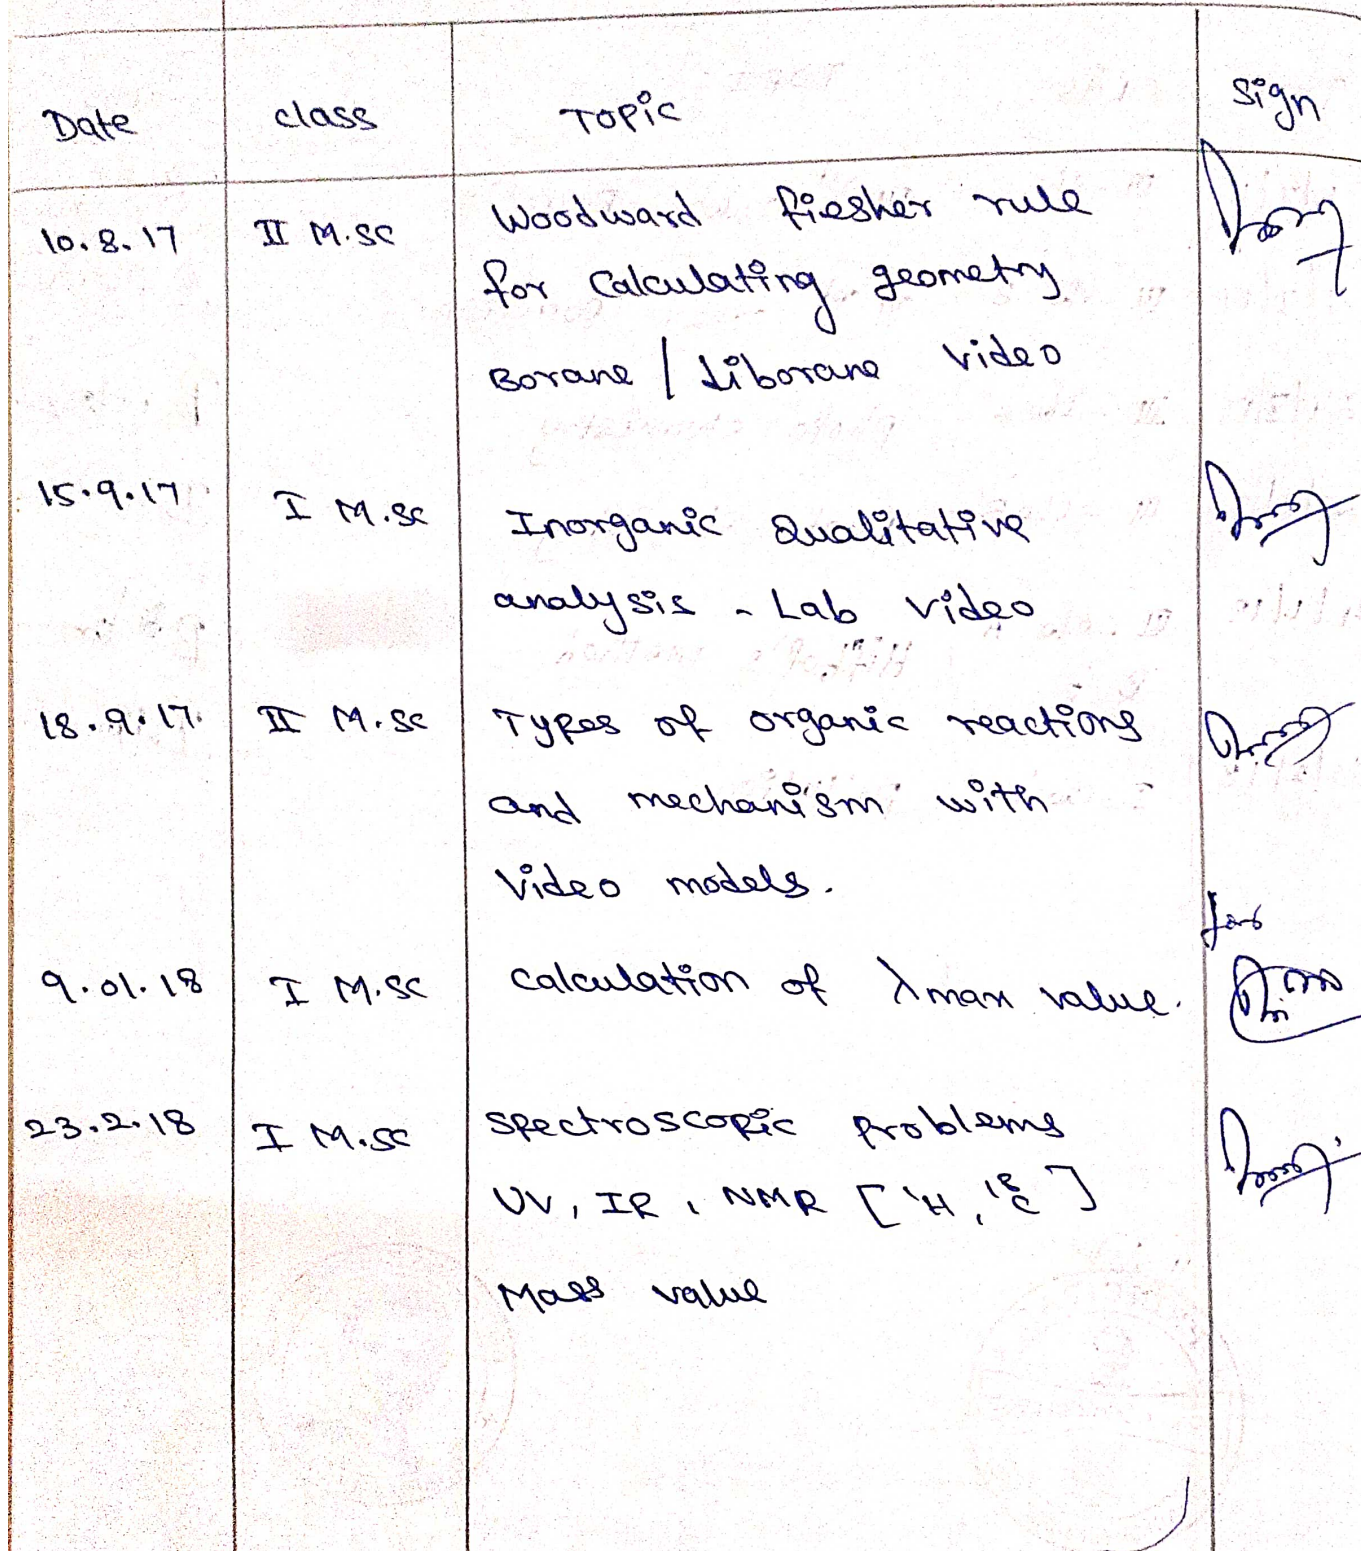 Date class Topic Sign
10.8.17 II M.Sc Woodward fiesher rule
for Calculating geometry
Borane / diborane video
15.9.17 I M.Sc Inorganic Qualitative
analysis - Lab video
18.9.17. II M.Sc Types of organic reactions
and mechanism with
Video models.
for
9.01.18 I M.Sc Calculation of λmax value.
23.2.18 I M.Sc Spectroscopic problems
UV, IR, NMR [¹H, ¹³C]
Mass value